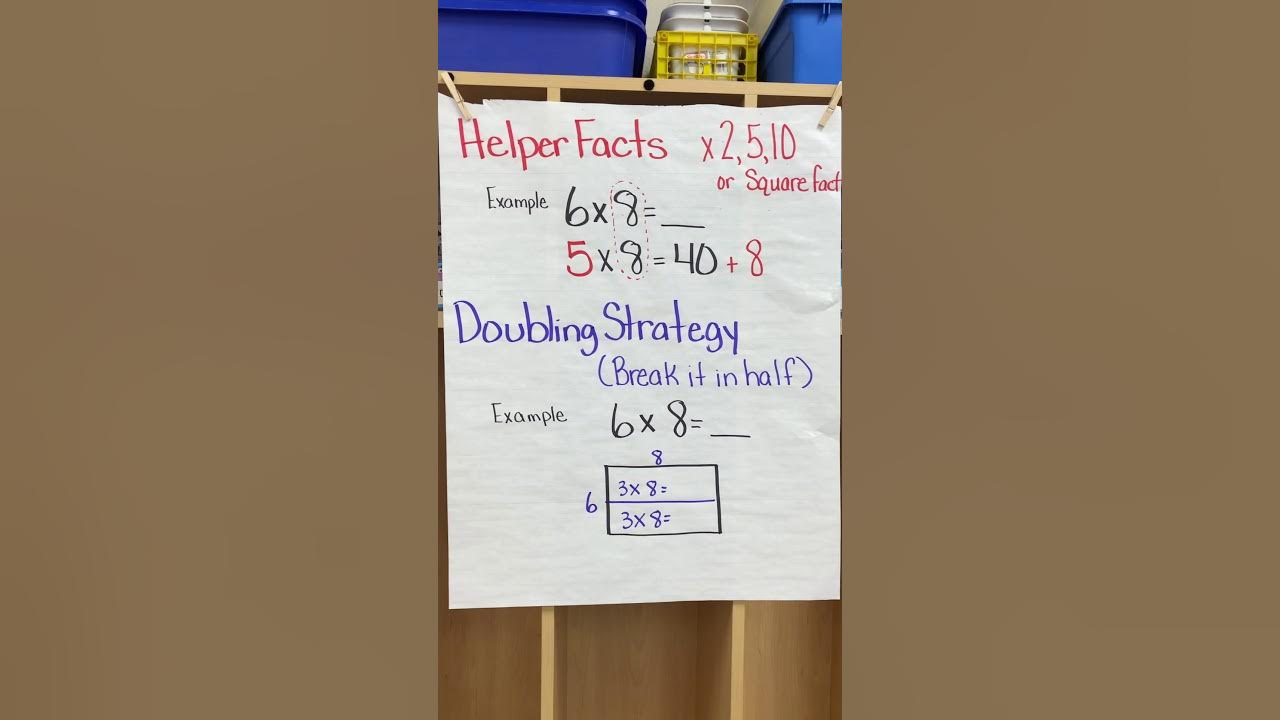 Helper Facts x2,5,10
or Square fact
Example 6x8=__
5x8=40+8
Doubling Strategy
(Break it in half)
Example 6x8=__
8
6 3x8=
3x8=